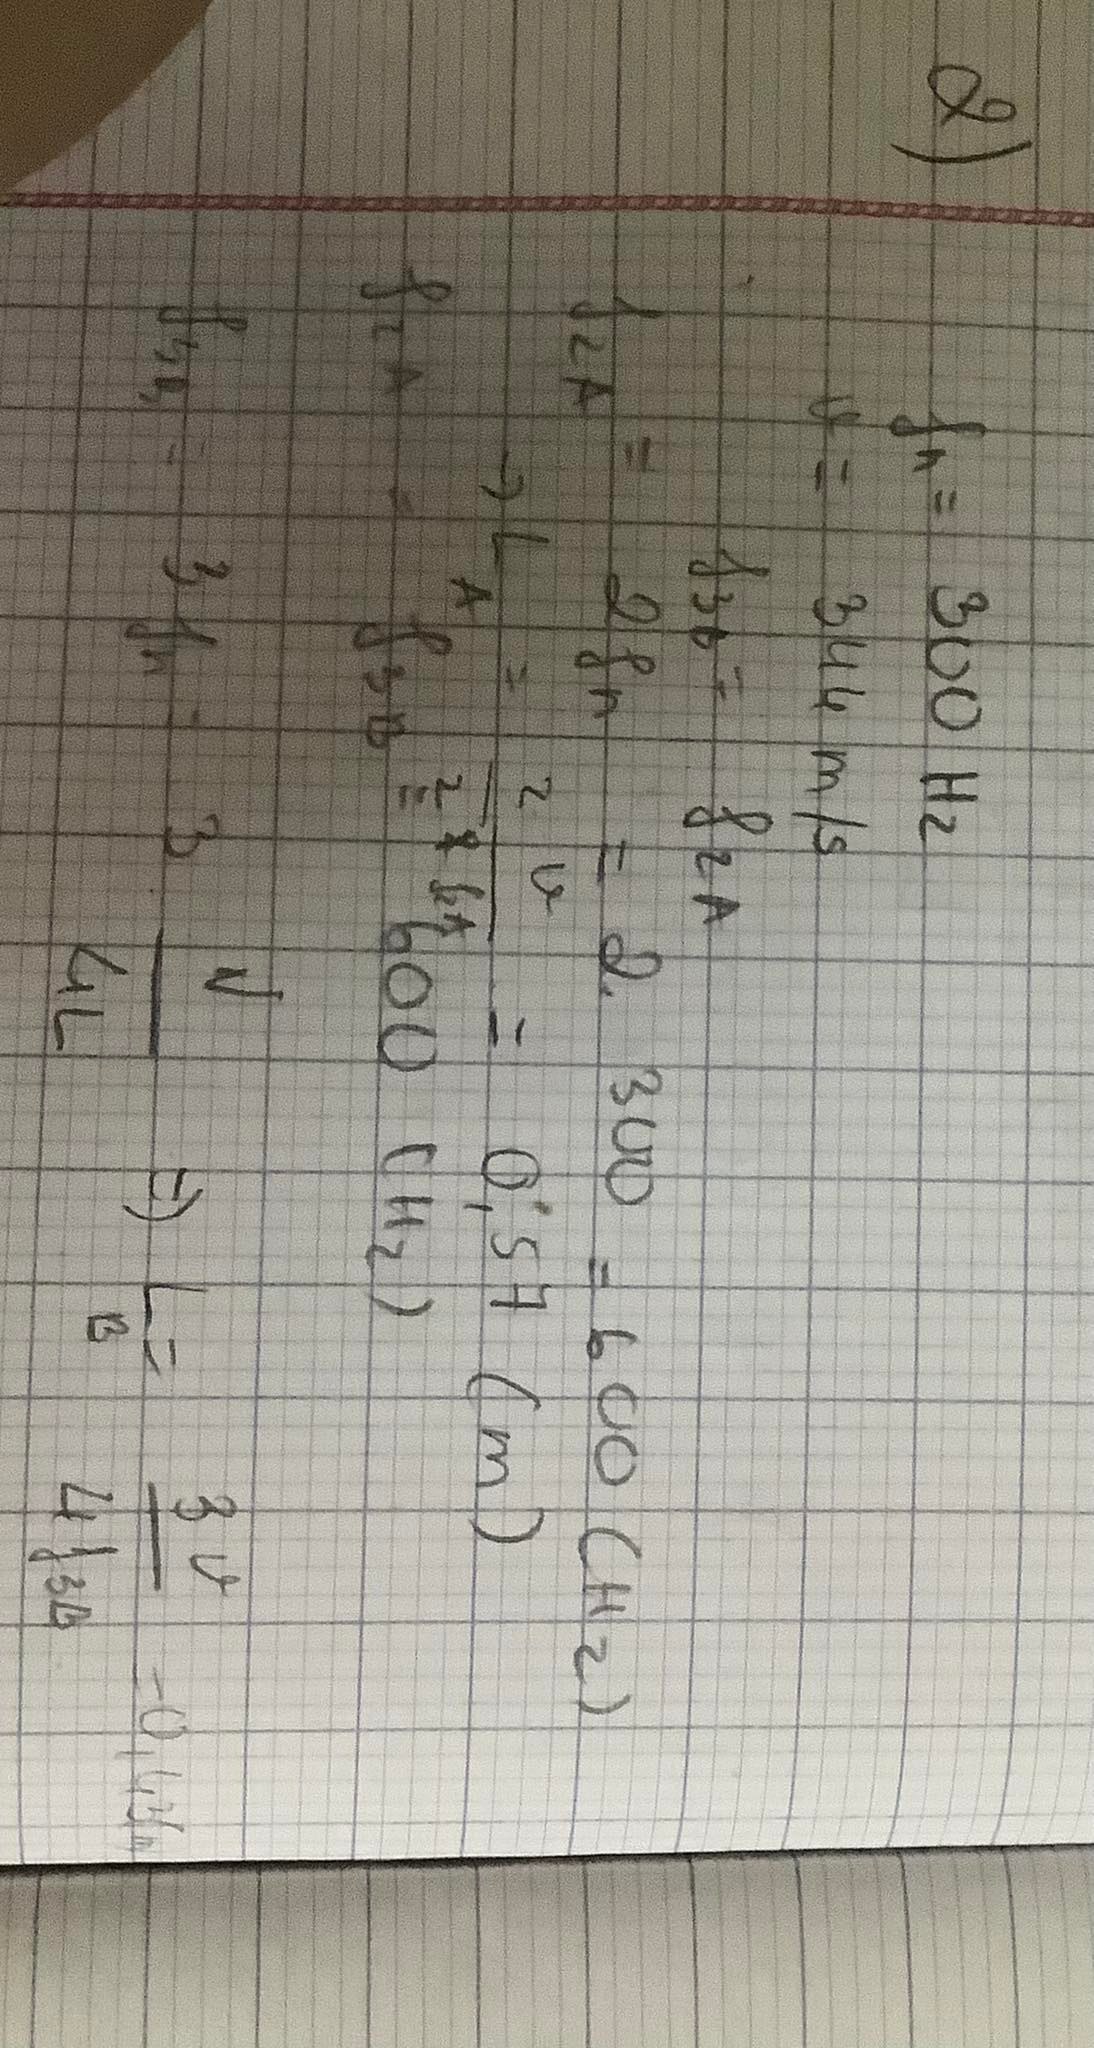 2)
f₁ = 300 Hz
v = 344 m/s
f₃B = f₂A
f₂A = 2f₁ = 2. 300 = 600 (Hz)
→ L_A = 2v / 2 f₂A = 0,57 (m)
f₂A = f₃B = 600 (Hz)
f₃B = 3f₁ = 3 v / 4L ⇒ L_B = 3v / 4f₃B = 0,43m